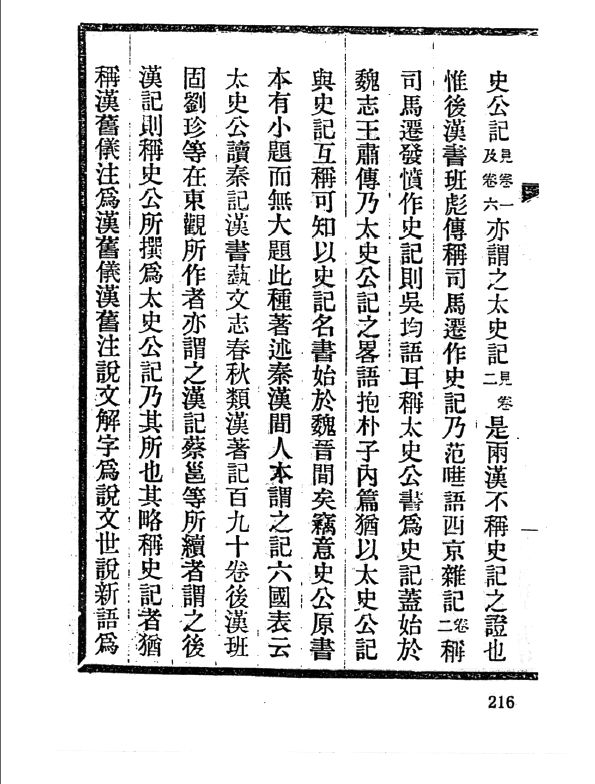 史公記見卷一及卷六亦謂之太史記見卷二是兩漢不稱史記之證也
惟後漢書班彪傳稱司馬遷作史記乃范曄語西京雜記卷二稱
司馬遷發憤作史記則吳均語耳稱太史公書爲史記蓋始於
魏志王肅傳乃太史公記之畧語抱朴子內篇猶以太史公記
與史記互稱可知以史記名書始於魏晉間矣竊意史公原書
本有小題而無大題此種著述秦漢間人本謂之記六國表云
太史公讀秦記漢書蓺文志春秋類漢著記百九十卷後漢班
固劉珍等在東觀所作者亦謂之漢記蔡邕等所續者謂之後
漢記則稱史公所撰爲太史公記乃其所也其略稱史記者猶
稱漢舊儀注爲漢舊儀漢舊注說文解字爲說文世說新語爲
216